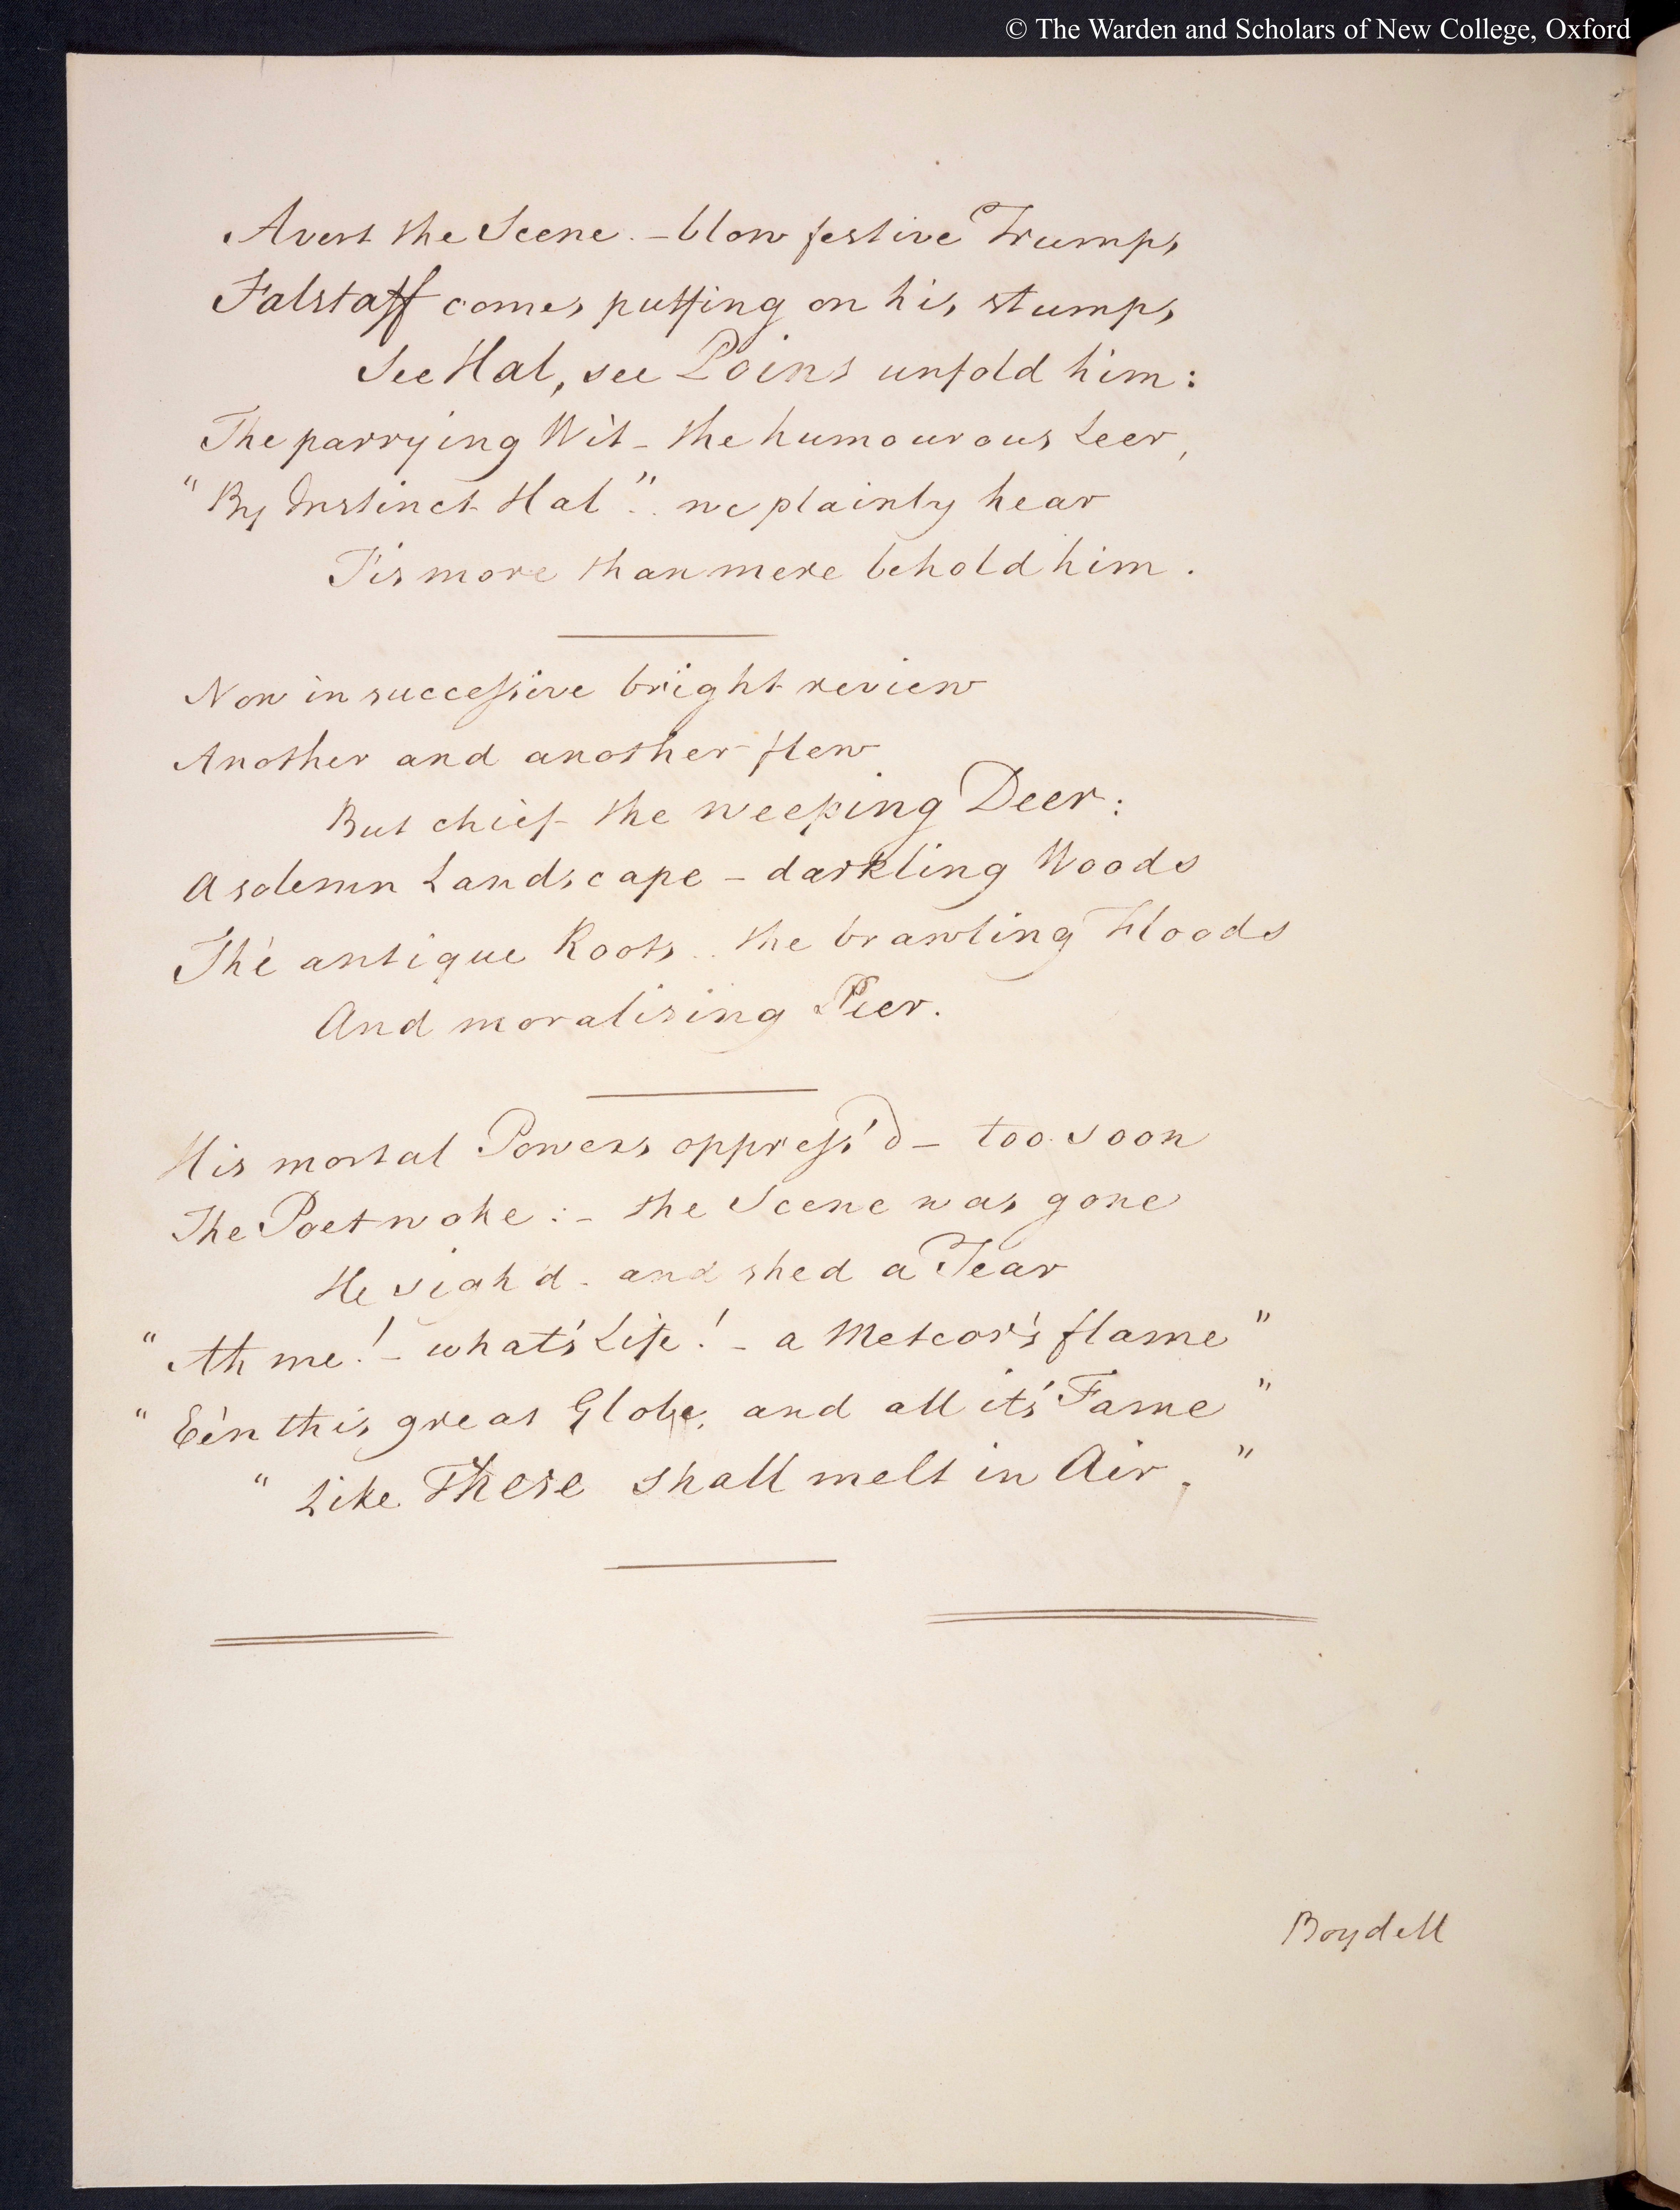 © The Warden and Scholars of New College, Oxford
Avert the Scene. – blow festive Trumps
Falstaff comes puffing on his stumps
See Hal, see Poins unfold him:
The parrying Wit – the humourous Leer,
"By Instinct Hal".. we plainly hear
T'is more than mere behold him.
Now in successive bright review
Another and another flew
But chief the weeping Deer:
A solemn Landscape – darkling Woods
The antique Roots.. the brawling Floods
And moralising Peer.
His mortal Powers oppress'd – too soon
The Poet woke: – the Scene was gone
He sigh'd – and shed a Tear
"Ah me! – what's Life! – a Meteor's flame"
"E'en this great Globe, and all it's Fame"
"Like These shall melt in Air."
Boydell